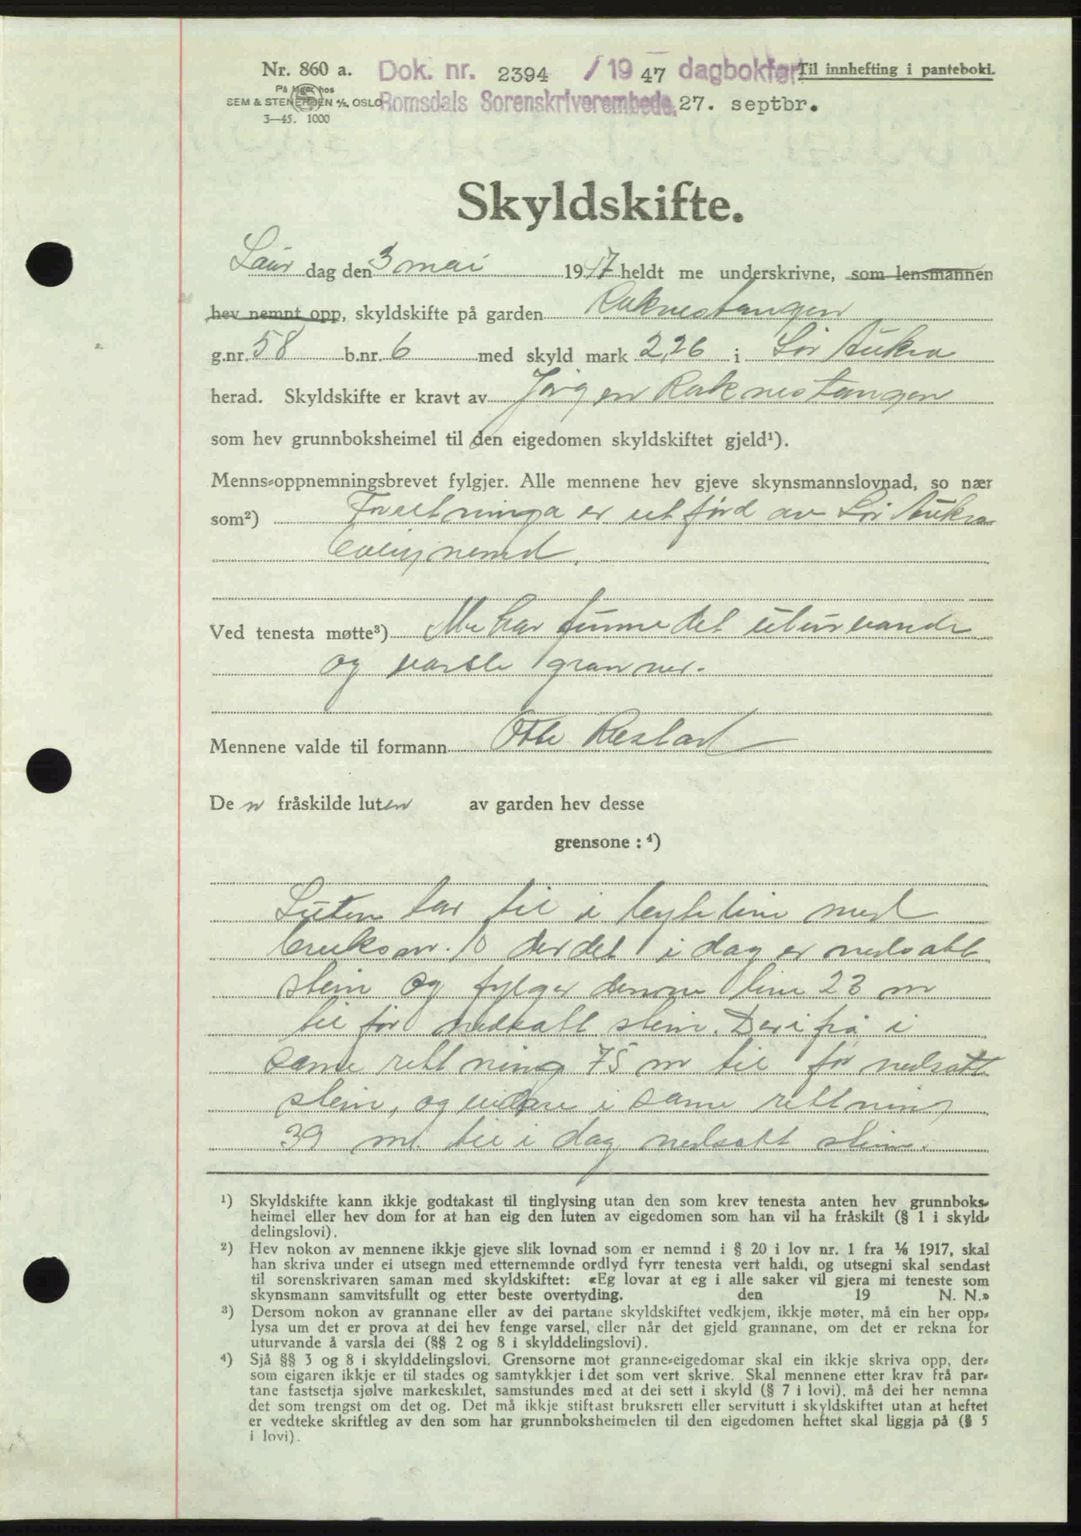 Nr. 860 a. Dok. nr. 2394 /19 47 dagbokført Til innhefting i panteboki.
På lager hos
SEM & STENERSEN A/S, OSLO Romsdals Sorenskriverembede. 27. septbr.
3—45. 1000
Skyldskifte.
Laur dag den 3 mai 1947 heldt me underskrivne, som lensmannen
hev nemnt opp, skyldskifte på garden Raknestangen
g.nr. 58 b.nr. 6 med skyld mark 2,26 i Sør Aukra
herad. Skyldskifte er kravt av Jørgen Raknestangen
som hev grunnboksheimel til den eigedomen skyldskiftet gjeld¹).
Menns-oppnemningsbrevet fylgjer. Alle mennene hev gjeve skynsmannslovnad, so nær
som²) Forretninga er utførd av Sør Aukra
nemd.
Ved tenesta møtte³) Me har funne det uturvande
og varsle granner.
Mennene valde til formann Otto Røshol
De n fråskilde luten av garden hev desse
grensone : ⁴)
Luten tar til i byteline med
bruksnr. 10 der det i dag er nedsatt
stein og fylger denne line 23 m
til før nedsatt stein. Der i frå i
same rettning 75 m til før nedsatt
stein, og vidare i same rettning
39 mt til i dag nedsatt stein.
¹) Skyldskifte kann ikkje godtakast til tinglysing utan den som krev tenesta anten hev grunnboks-
heimel eller hev dom for at han eig den luten av eigedomen som han vil ha fråskilt (§ 1 i skyld-
delingslovi).
²) Hev nokon av mennene ikkje gjeve slik lovnad som er nemnd i § 20 i lov nr. 1 fra 1/6 1917, skal
han skriva under ei utsegn med etternemnde ordlyd fyrr tenesta vert haldi, og utsegni skal sendast
til sorenskrivaren saman med skyldskiftet: «Eg lovar at eg i alle saker vil gjera mi teneste som
skynsmann samvitsfullt og etter beste overtyding. den 19 N. N.»
³) Dersom nokon av grannane eller av dei partane skyldskiftet vedkjem, ikkje møter, må ein her opp-
lysa um det er prova at dei hev fenge varsel, eller når det gjeld grannane, om det er rekna for
uturvande å varsla dei (§§ 2 og 8 i skylddelingslovi).
⁴) Sjå §§ 3 og 8 i skylddelingslovi. Grensorne mot granne-eigedomar skal ein ikkje skriva opp, der-
som eigaren ikkje er til stades og samtykkjer i det som vert skrive. Skal mennene etter krav frå par-
tane fastsetja sjølve markeskilet, samstundes med at dei sett i skyld (§ 7 i lovi), må dei her nemna
det som trengst om det og. Det må ikkje stiftast bruksrett eller servitutt i skyldskiftet utan at heftet
er vedteke skriftleg av den som har grunnboksheimelen til den eigedomen heftet skal liggja på (§ 5
i lovi).